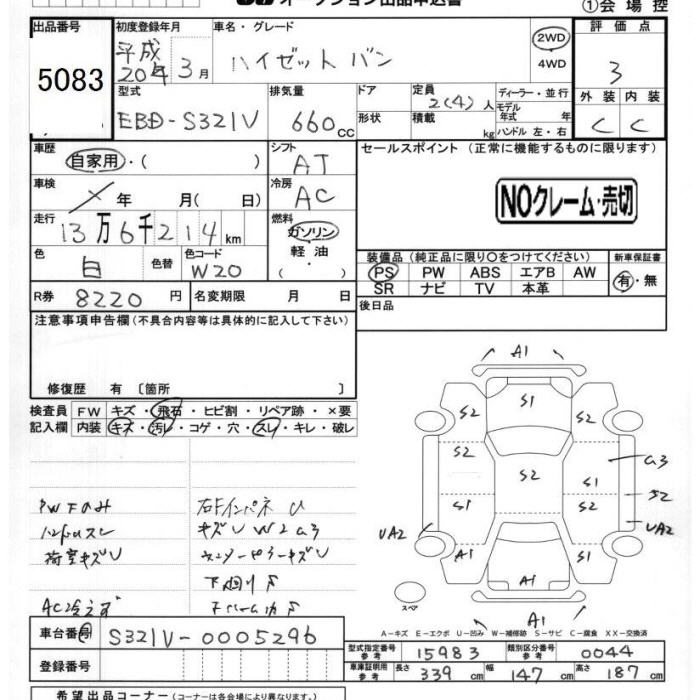 オークション出品申込書
①会場控
出品番号 初度登録年月 車名・グレード 評価点
5083 平成20年3月 ハイゼット バン 2WD 4WD 3
型式 排気量 ドア 定員 ディーラー・並行 外装 内装
EBD-S321V 660cc 2(4)人 モデル年式 年式
形状 積載 kg ハンドル 左・右 C C
車歴 シフト セールスポイント(正常に機能するものに限ります)
自家用・( ) AT
車検 冷房
× 年 月( 日) AC NOクレーム・売切
走行 燃料
13万6千214km ガソリン
色 色替 色コード 軽油
白 W20 ・( )
装備品(純正品に限り○をつけてください) 新車保証書
PS PW ABS エアB AW 有・無
SR ナビ TV 本革
R券 8220円 名変期限 月 日 後日品
注意事項申告欄(不具合内容等は具体的に記入して下さい)
修復歴 有 〔箇所 〕
検査員 FW キズ・飛石・ヒビ割・リペア跡・×要
記入欄 内装 キズ・汚レ・コゲ・穴・スレ・キレ・破レ
A1
S2 S1 S2
S2 S2 S1 a3
S1 S1 S2
UA2 UA2
A1 S1
A1
A1
スペア
PWFのみ 右Fインパネ U
キズU W2 a3
荷室キズU
下廻りS
AC冷えず
A-キズ E-エクボ U-凹み W-補修跡 S-サビ C-腐食 XX-交換済
車台番号 S321V-0005296
登録番号
型式指定番号 参考 15983 類別区分番号 参考 0044
車庫証明用 参考 長さ 339cm 幅 147cm 高さ 187cm
希望出品コーナー(コーナーは各会場により異なります)